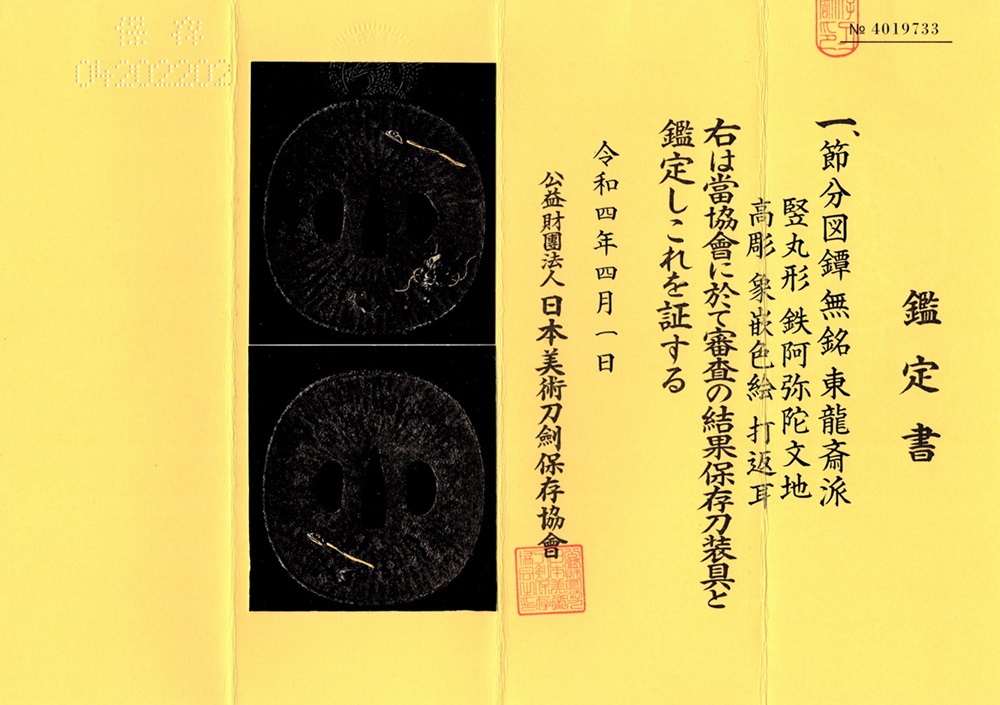 № 4019733
鑑定書
一、節分図鐔 無銘 東龍斎派
竪丸形 鉄阿弥陀文地
高彫 象嵌色絵 打返耳
右は當協會に於て審査の結果保存刀装具と
鑑定しこれを証する
令和四年四月一日
公益財團法人 日本美術刀劍保存協會
保存
04202202